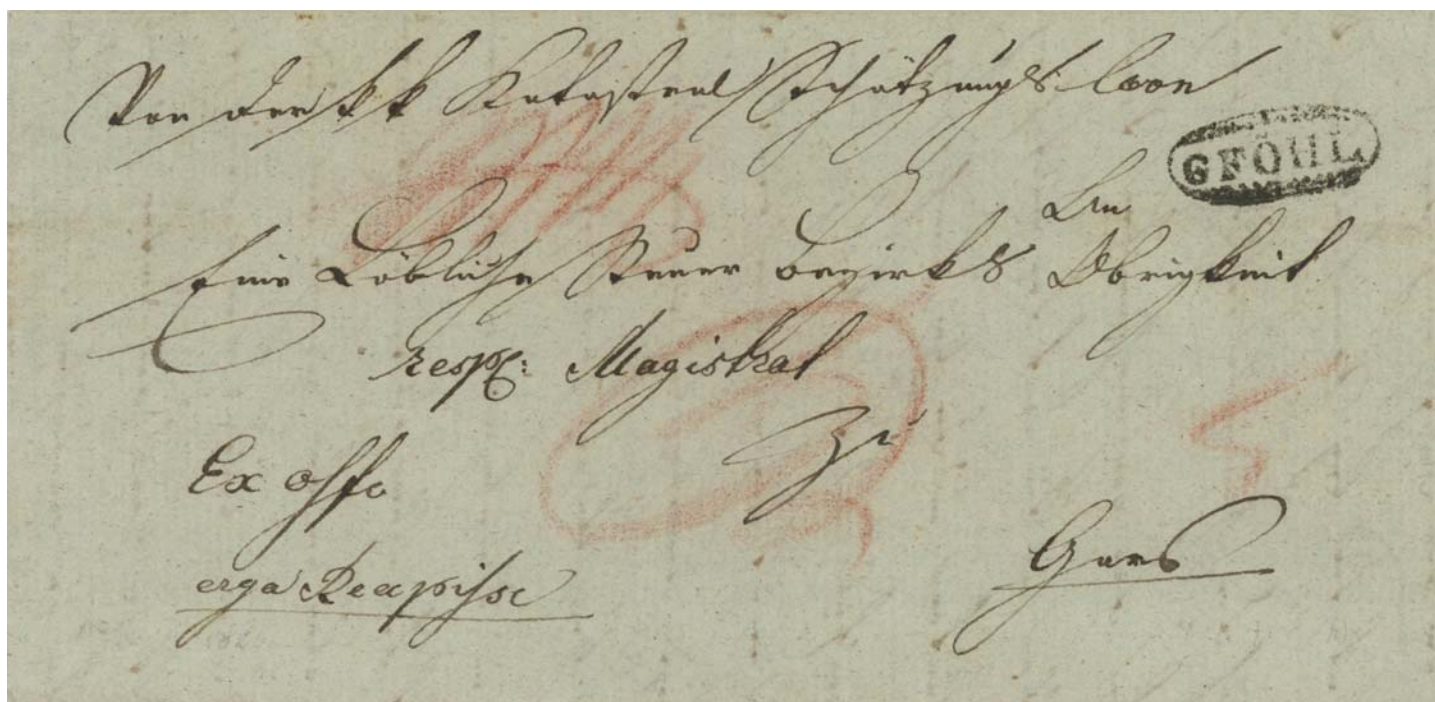 Von der k k Katastral Schätzungs Coon
GFÖHL
An
Eine Löbliche Steuer Bezirks Obrigkeit
resp: Magistrat
zu
Ex offo
Gars
erga Recepisse